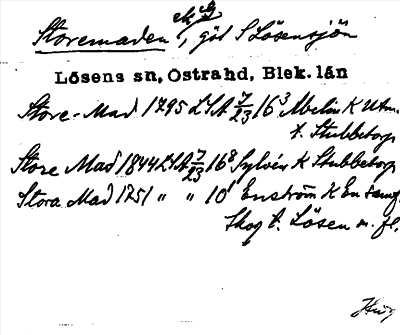 Storemaden, göl S Lösensjön
Lösens sn, Östra hd, Blek. län
Store-Mad 1795 LSA 7/23 16³ Melin K Utm.
t. Stubbetorp
Store Mad 1844 LSA 7/23 16⁸ Sylvén K Stubbetorp
Stora Mad 1751 " " 10¹ Enström K En
Skog t. Lösen m. fl.